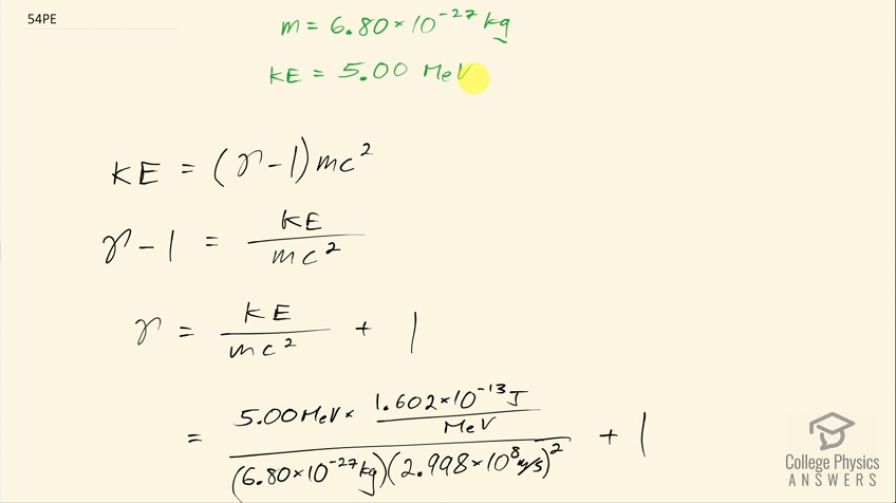 54PE
m = 6.80 × 10⁻²⁷ kg
KE = 5.00 MeV
KE = (γ - 1)mc²
γ - 1 = KE / mc²
γ = KE / mc² + 1
= 5.00 MeV × 1.602×10⁻¹³ J / MeV / (6.80×10⁻²⁷ kg)(2.998×10⁸ m/s)² + 1
College Physics
ANSWERS